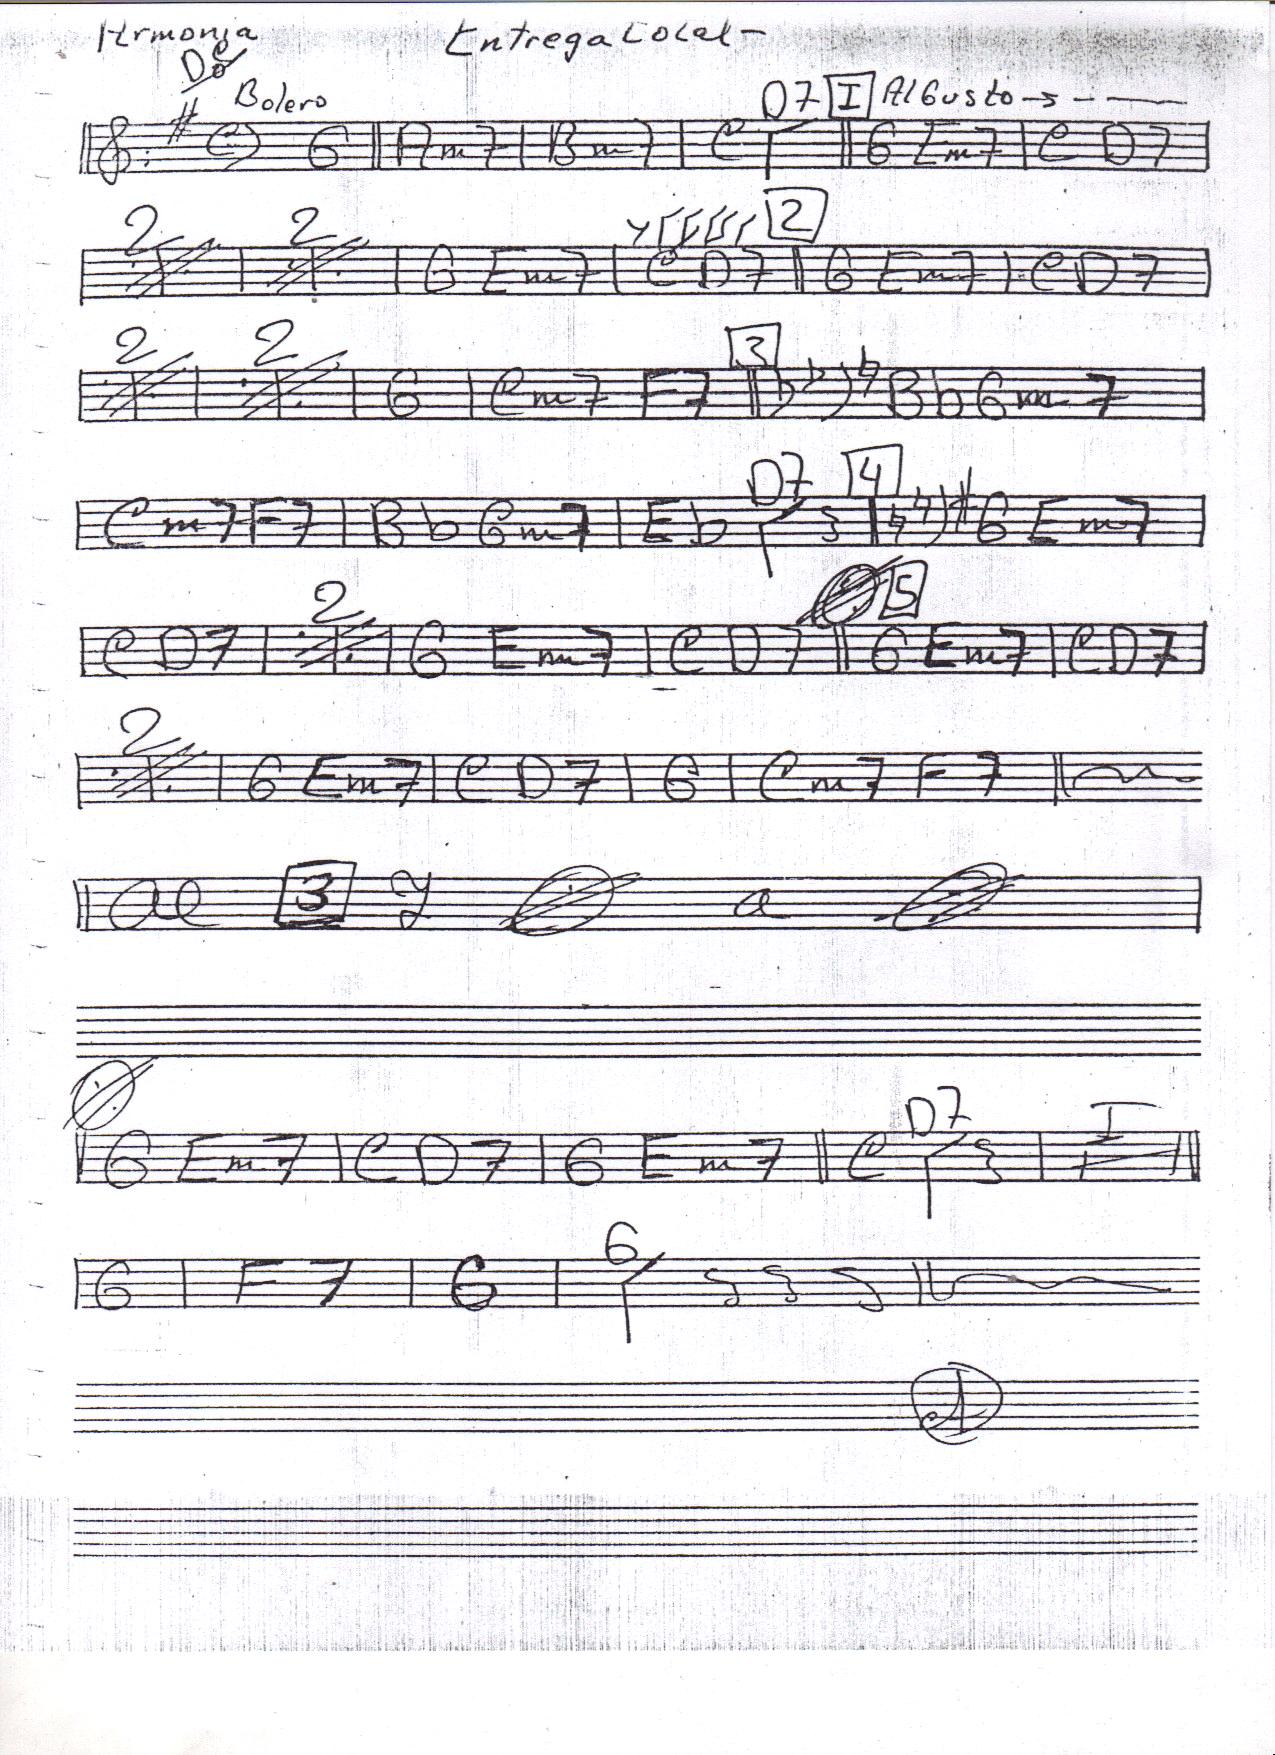 Armonia Entrega Total -
Do
Bolero D7 1 Al Gusto
C G Am7 Bm7 C G Em7 C D7
2 2 2
G Em7 C D7 G Em7 C D7
2 2 3
G Cm7 F7 Bb Gm7
D7 4
Cm7 F7 Bb Gm7 Eb G Em7
2 5
C D7 G Em7 C D7 G Em7 C D7
2
G Em7 C D7 G Cm7 F7
al 3 y a
D7
G Em7 C D7 G Em7 C
G
G F7 G